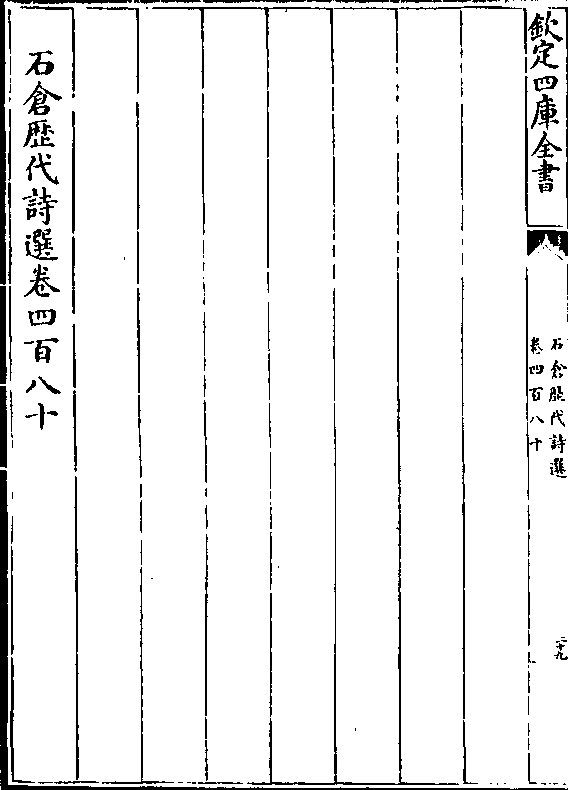 欽定四庫全書
石倉歷代詩選
卷四百八十
二十九
石倉歷代詩選卷四百八十